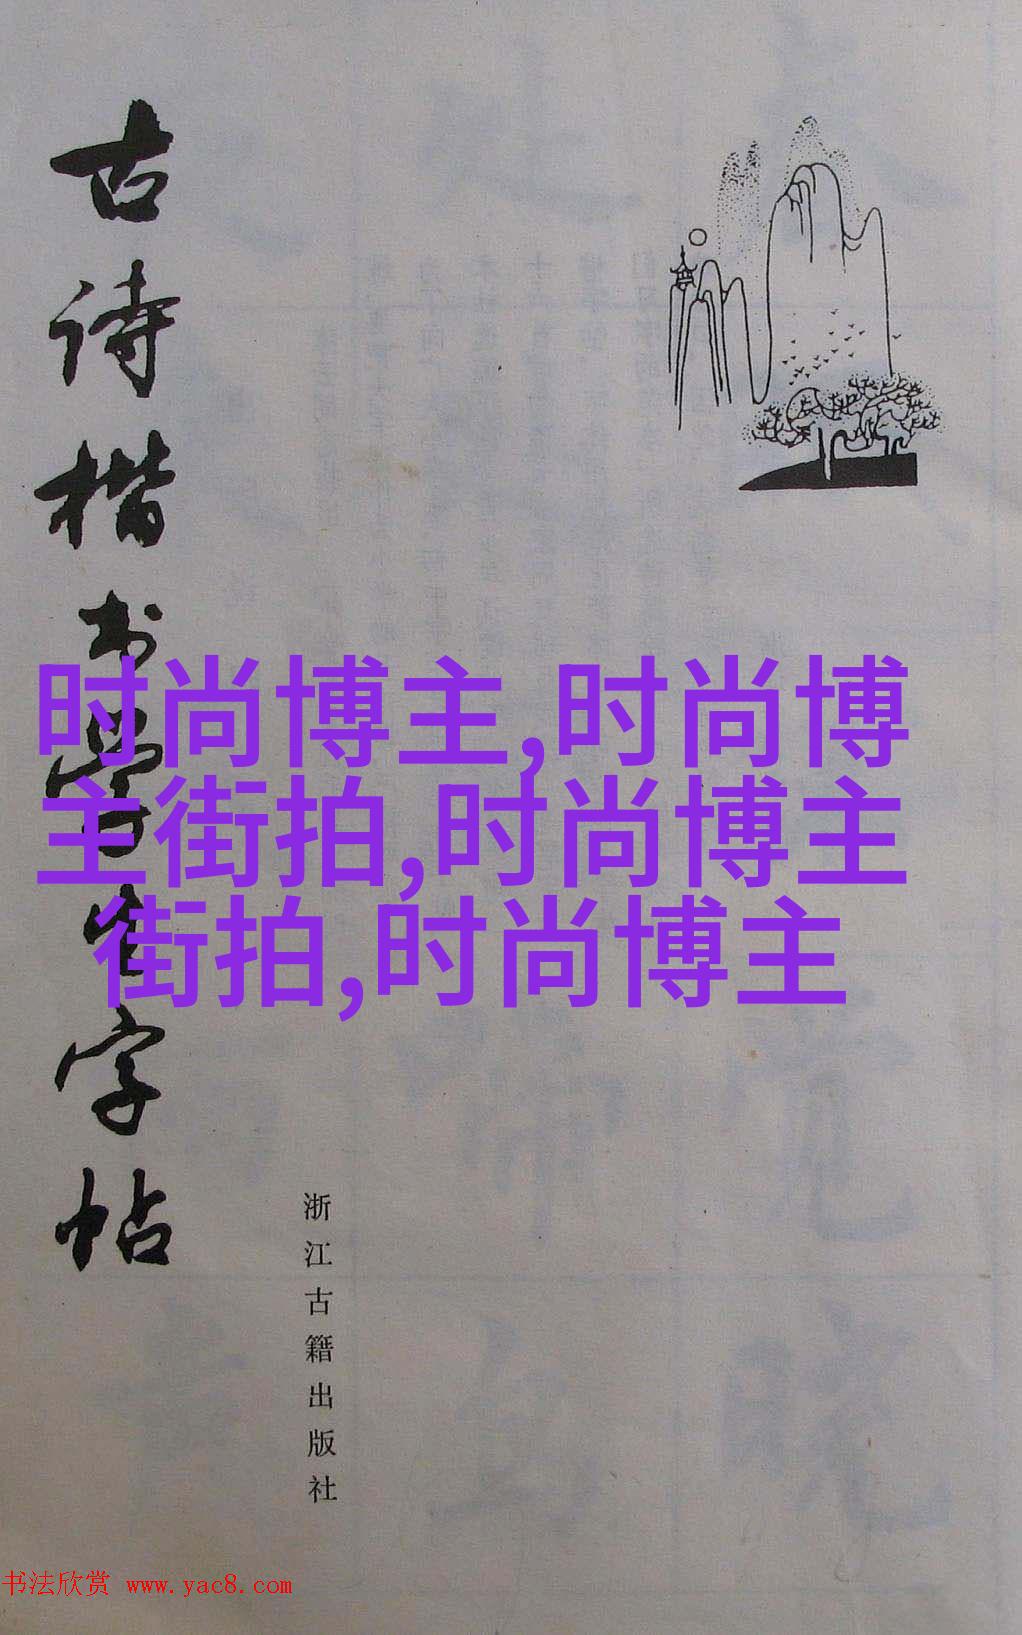 古诗楷书学生字帖
时尚博主,时尚博
主街拍,时尚博主
街拍,时尚博主
浙江古籍出版社
书法欣赏 www.yac8.com